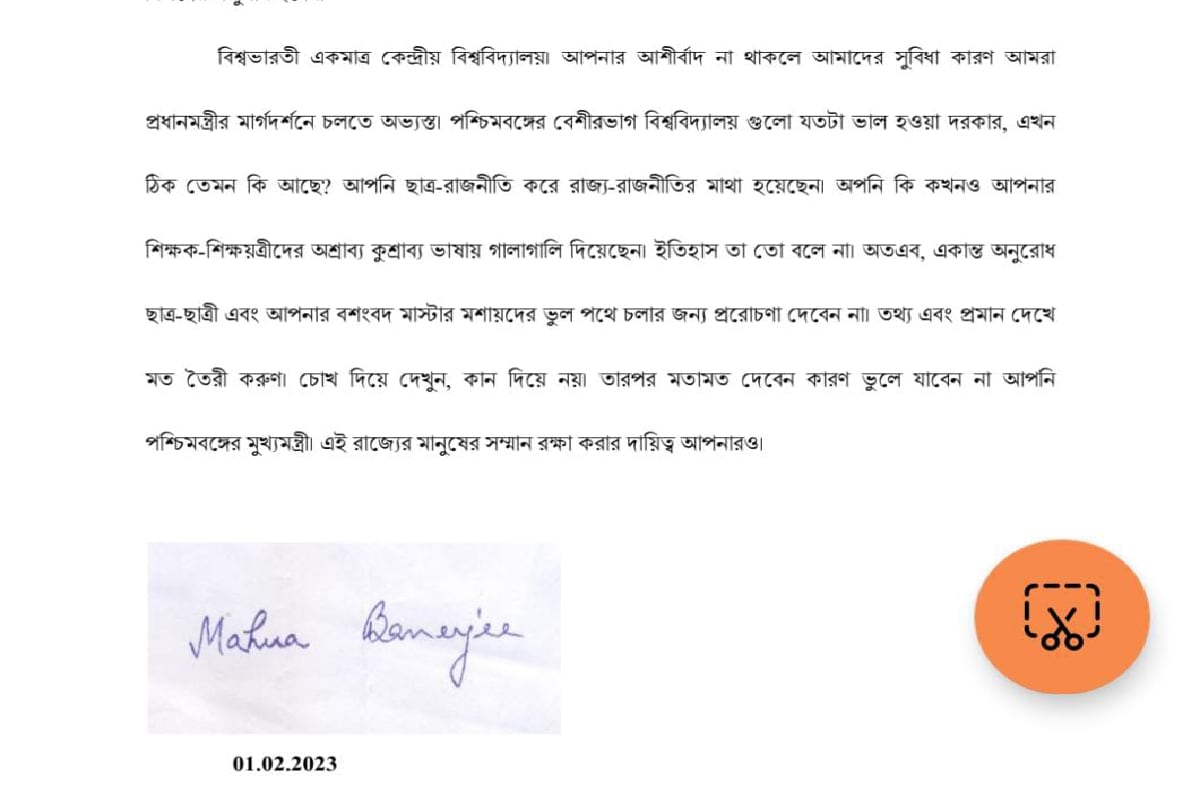 বিশ্বভারতী একমাত্র কেন্দ্রীয় বিশ্ববিদ্যালয়। আপনার আশীর্বাদ না থাকলে আমাদের সুবিধা কারণ আমরা
প্রধানমন্ত্রীর মার্গদর্শনে চলতে অভ্যস্ত। পশ্চিমবঙ্গের বেশীরভাগ বিশ্ববিদ্যালয় গুলো যতটা ভাল হওয়া দরকার, এখন
ঠিক তেমন কি আছে? আপনি ছাত্র-রাজনীতি করে রাজ্য-রাজনীতির মাথা হয়েছেন। অপনি কি কখনও আপনার
শিক্ষক-শিক্ষয়ত্রীদের অশ্রাব্য কুশ্রাব্য ভাষায় গালাগালি দিয়েছেন। ইতিহাস তা তো বলে না। অতএব, একান্ত অনুরোধ
ছাত্র-ছাত্রী এবং আপনার বশংবদ মাস্টার মশায়দের ভুল পথে চলার জন্য প্ররোচণা দেবেন না। তথ্য এবং প্রমান দেখে
মত তৈরী করুণ। চোখ দিয়ে দেখুন, কান দিয়ে নয়। তারপর মতামত দেবেন কারণ ভুলে যাবেন না আপনি
পশ্চিমবঙ্গের মুখ্যমন্ত্রী। এই রাজ্যের মানুষের সম্মান রক্ষা করার দায়িত্ব আপনারও।
Mahua Banerjee
01.02.2023